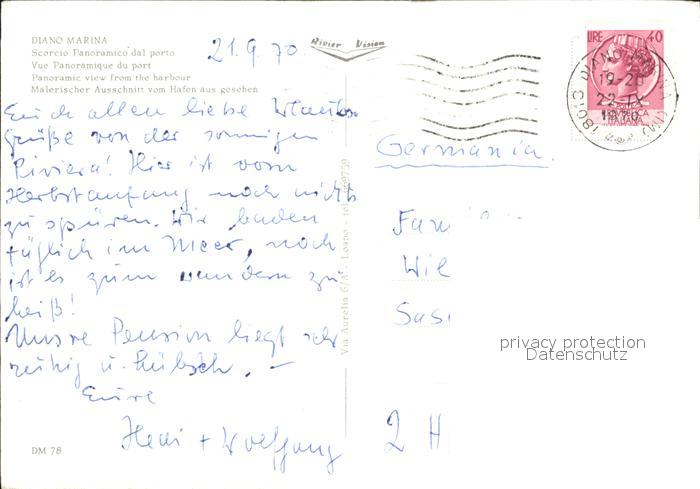 DIANO MARINA
Scorcio Panoramico dal porto
Vue Panoramique du port
Panoramic view from the harbour
Malerischer Ausschnitt vom Hafen aus gesehen
21.9.70
Rivier Vision
Euch allen liebe Urlaubs
grüße von der sonnigen
Riviera! Hier ist vom
Herbstanfang noch nichts
zu spüren. Wir baden
täglich im Meer, noch
ist es zum wandern zu
heiß!
Unsre Pension liegt sehr
ruhig u. hübsch. -
Eure
Hedi + Wolfgang
DM 78
Via Aurelia 6/A Loano -
LIRE 40
18013 DIANO MARINA
19-20
22-IX
1970
Germania.
Fam
Wil
Sas
2 H
privacy protection
Datenschutz